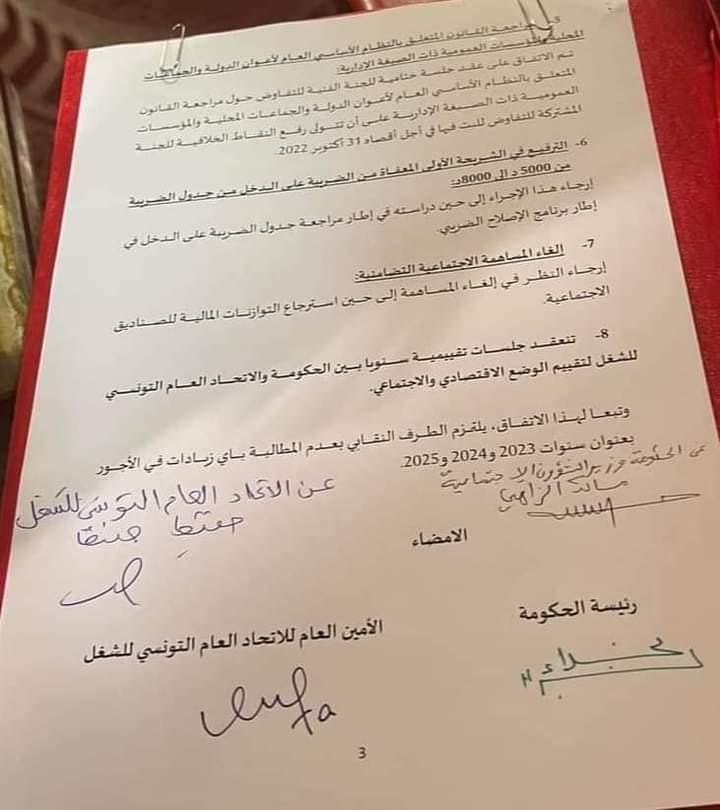 5- مراجعة القانون المتعلق بالنظام الأساسي العام لأعوان الدولة والجماعات
المحلية والمؤسسات العمومية ذات الصبغة الإدارية:
تم الاتفاق على عقد جلسة ختامية للجنة الفنية للتفاوض حول مراجعة القانون
المتعلق بالنظام الأساسي العام لأعوان الدولة والجماعات المحلية والمؤسسات
العمومية ذات الصبغة الإدارية على أن تتولى رفع النقاط الخلافية للجنة
المشتركة للتفاوض للبت فيها في أجل أقصاه 31 أكتوبر 2022.
6- الترفيع في الشريحة الأولى المعفاة من الضريبة على الدخل من جدول الضريبة
من 5000 د إلى 8000د:
إرجاء هذا الإجراء إلى حين دراسته في إطار مراجعة جدول الضريبة على الدخل في
إطار برنامج الإصلاح الضريبي.
7- إلغاء المساهمة الاجتماعية التضامنية:
إرجاء النظر في إلغاء المساهمة إلى حين استرجاع التوازنات المالية للصناديق
الاجتماعية.
8- تنعقد جلسات تقييمية سنويا بين الحكومة والاتحاد العام التونسي
للشغل لتقييم الوضع الاقتصادي والاجتماعي.
وتبعا لهذا الاتفاق، يلتزم الطرف النقابي بعدم المطالبة باي زيادات في الأجور
بعنوان سنوات 2023 و2024 و2025.
عن الحكومة وزير الشؤون الاجتماعية
مالك الزاهي
عن الاتحاد العام التونسي للشغل
حفيظ حفيظ
الامضاء
رئيسة الحكومة
الأمين العام للاتحاد العام التونسي للشغل
3